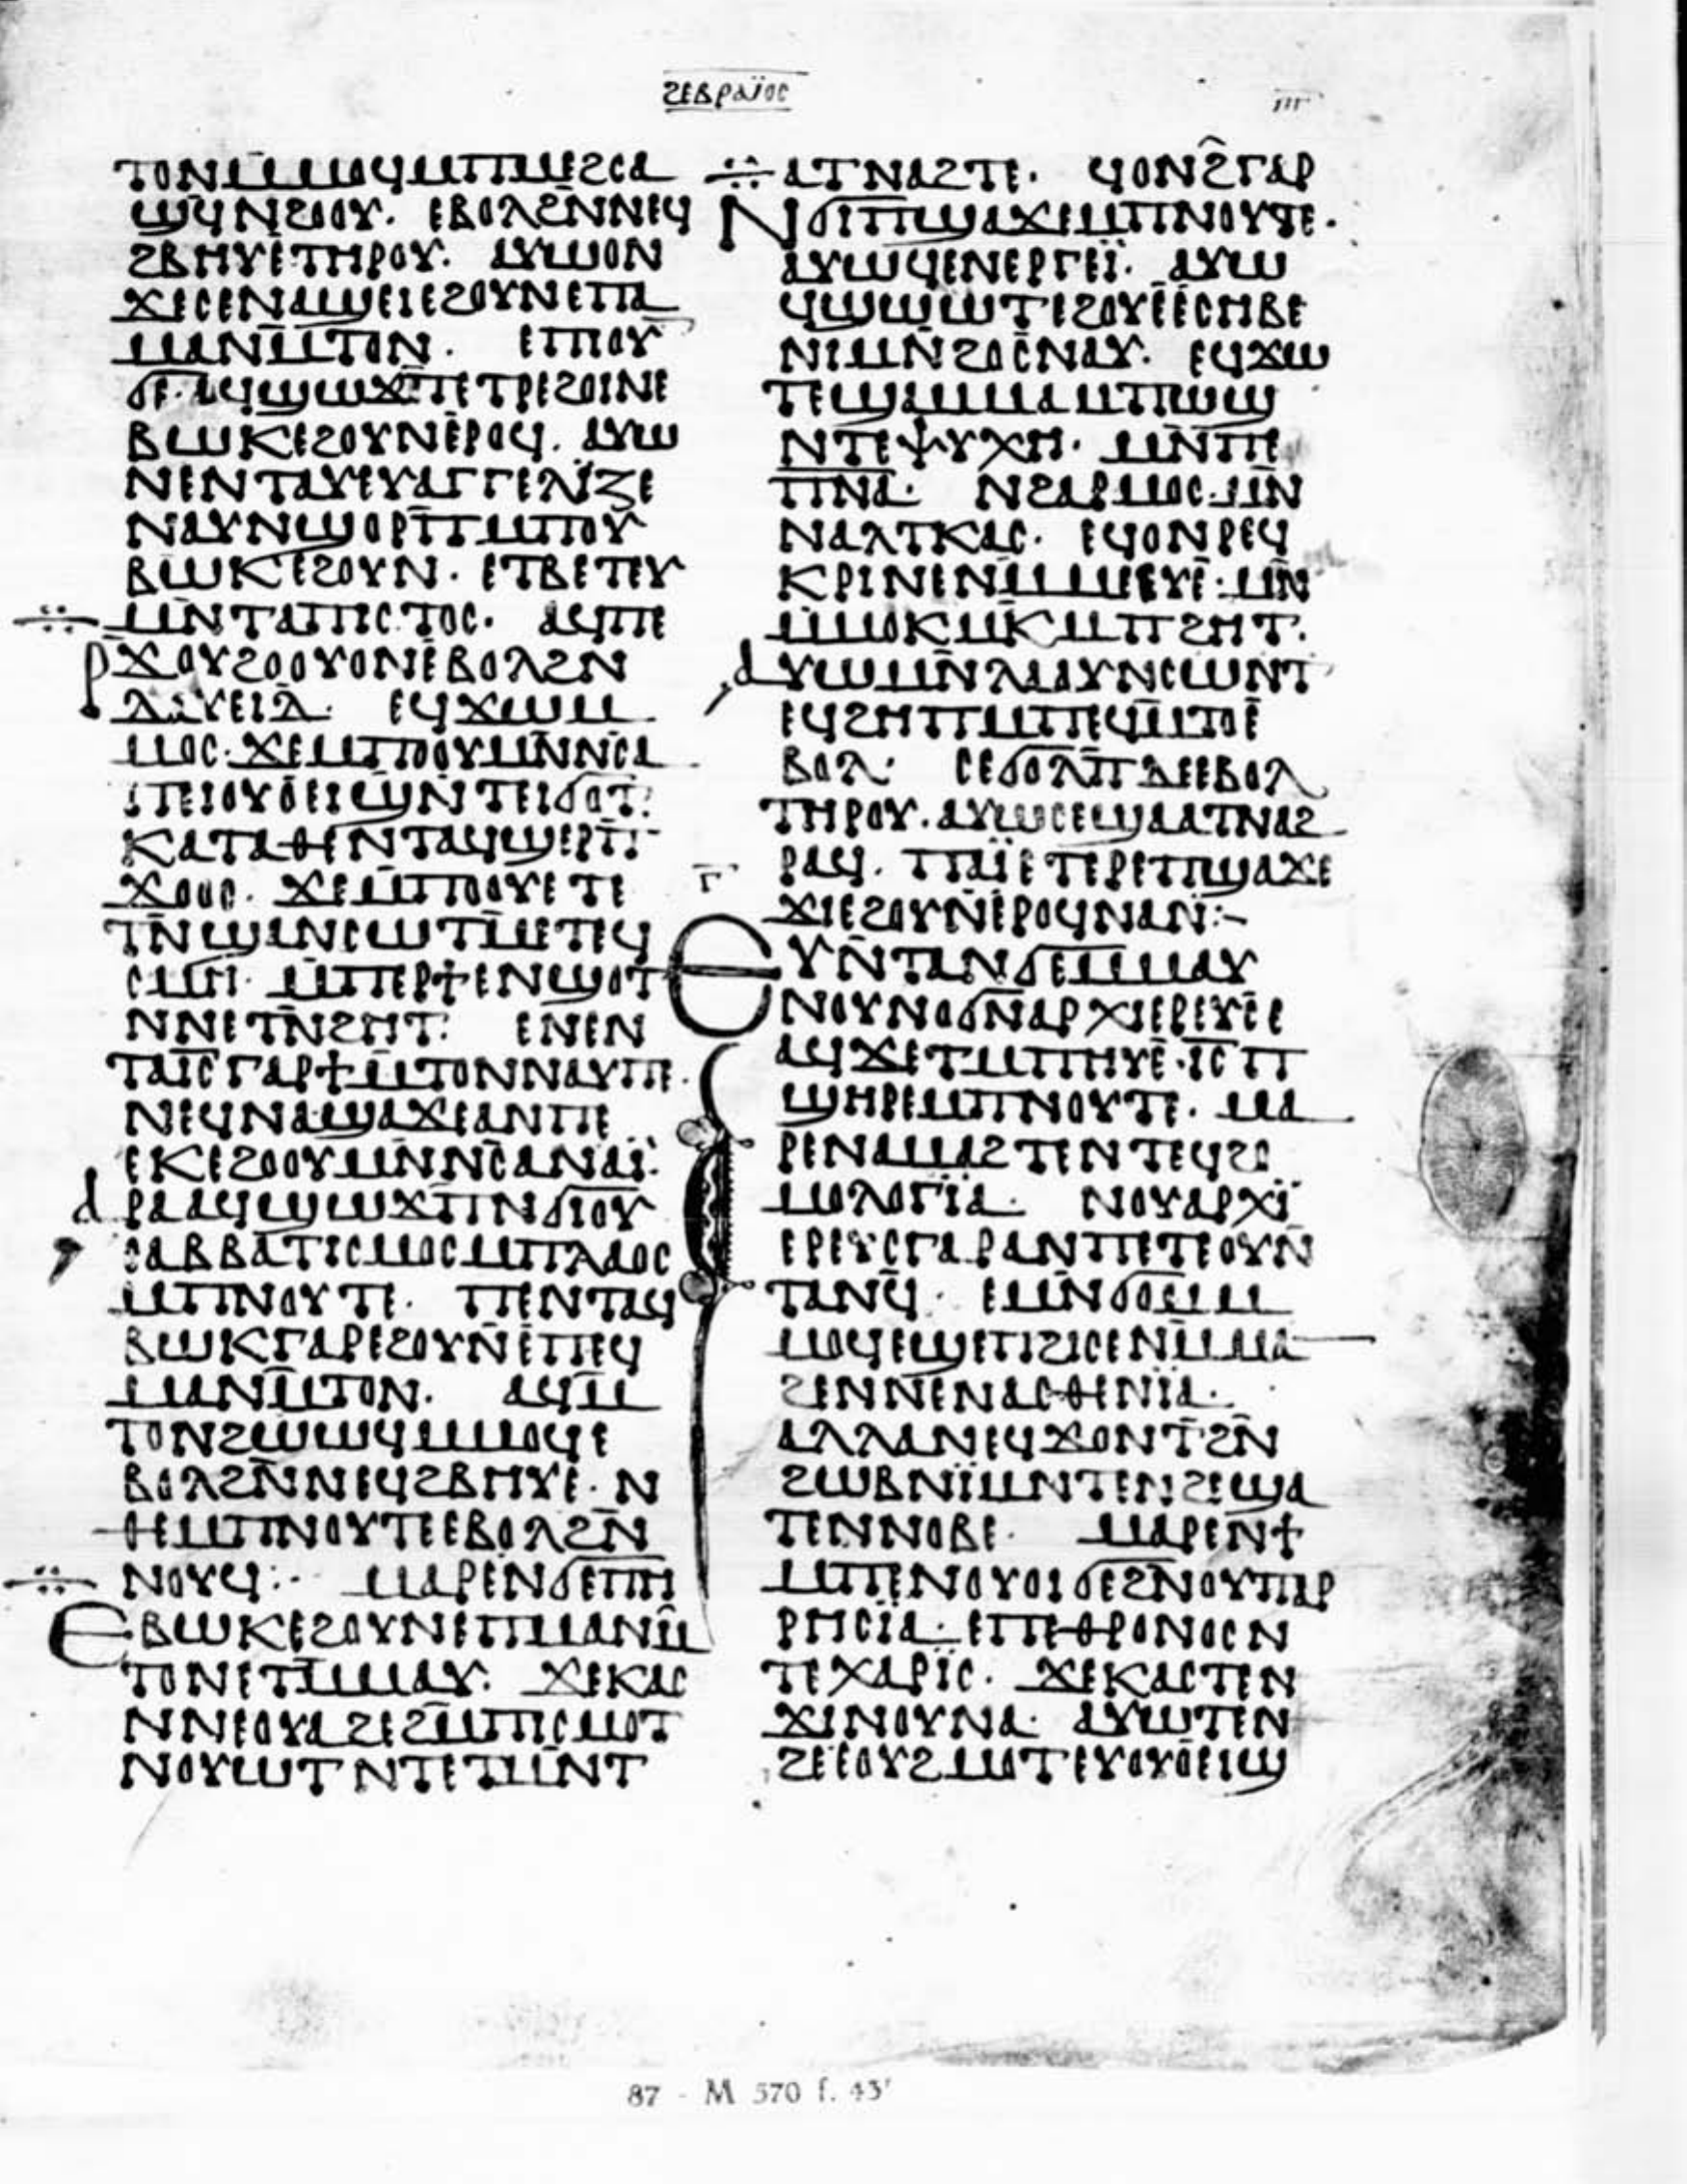 ϩⲉⲃⲣⲁⲓ̈ⲟⲥ
ⲧⲟⲛⲙ̄ⲙⲟϥⲙ̄ⲡⲙⲉϩⲥⲁ
ϣϥⲛ̄ϩⲟⲟⲩ· ⲉⲃⲟⲗϩⲛ̄ⲛⲉϥ
ϩⲃⲏⲩⲉⲧⲏⲣⲟⲩ· ⲁⲩⲱⲟⲛ
ϫⲉⲥⲉⲛⲁϣⲉⲓⲉϩⲟⲩⲛⲉⲡⲁ
ⲙⲁⲛⲙ̄ⲧⲟⲛ·
ϭⲉ·ⲁϥϣⲱϫⲡ̄ⲉⲧⲣⲉϩⲟⲓⲛⲉ
ⲃⲱⲕⲉϩⲟⲩⲛⲉⲣⲟϥ· ⲁⲩⲱ
ⲛⲉⲛⲧⲁⲩⲉⲩⲁⲅⲅⲉⲗⲓⲍⲉ
ⲛⲁⲩⲛϣⲟⲣⲡ̄ⲙⲡⲟⲩ
ⲃⲱⲕⲉϩⲟⲩⲛ· ⲉⲧⲃⲉⲧⲉⲩ
ⲙⲛ̄ⲧⲁⲡⲓⲥⲧⲟⲥ· ⲁϥⲡⲉ
ⲣϫⲟⲩϩⲟⲟⲩⲟⲛⲉⲃⲟⲗϩⲛ
ⲇⲁⲩⲉⲓⲇ· ⲉϥϫⲱⲙ
ⲙⲟⲥ·ϫⲉⲙⲡⲟⲟⲩⲙⲛ̄ⲛⲥⲁ
ⲡⲉⲓⲟⲩⲟⲉⲓϣⲛⲧⲉⲓϭⲟⲧ·
ⲕⲁⲧⲁⲑⲉⲛⲧⲁϥϣⲉⲣⲡ̄
ϫⲟⲟⲥ· ϫⲉⲙ̄ⲡⲟⲟⲩⲉⲧⲉ
ⲧⲛ̄ϣⲁⲛⲥⲱⲧⲙ̄ⲉⲧⲉϥ
ⲥⲙⲏ· ⲙ̄ⲡⲉⲣϯⲉⲛϣⲟⲧ
ⲛⲛⲉⲧⲛ̄ϩⲏⲧ· ⲉⲛⲉⲛ
ⲧⲁⲓ̅ⲥ̅ⲅⲁⲣϯⲙ̄ⲧⲟⲛⲛⲁⲩⲡⲉ·
ⲛⲉϥⲛⲁϣⲁϫⲉⲁⲛⲡⲉ
ⲉⲕⲉϩⲟⲟⲩⲙⲛ̄ⲛⲥⲁⲛⲁⲓ̈·
ⲁⲣⲁⲁϥϣⲱϫⲡ̄ⲛϭⲓⲟⲩ
ⲥⲁⲃⲃⲁⲧⲓⲥⲙⲟⲥⲙⲡⲗⲁⲟⲥ
ⲙⲡⲛⲟⲩⲧⲉ· ⲡⲉⲛⲧⲁϥ
ⲃⲱⲕⲅⲁⲣⲉϩⲟⲩⲛ̄ⲉⲡⲉϥ
ⲙⲁⲛⲙ̄ⲧⲟⲛ· ⲁϥⲙ̄
ⲧⲟⲛϩⲱⲱϥⲙⲙⲟϥⲉ
ⲃⲟⲗϩⲛ̄ⲛⲉϥϩⲃⲏⲩⲉ·ⲛ
ⲑⲉⲙⲡⲛⲟⲩⲧⲉⲉⲃⲟⲗϩⲛ̄
ⲛⲟⲩϥ:· ⲙⲁⲣⲉⲛϭⲉⲡⲏ
ⲉⲃⲱⲕⲉϩⲟⲩⲛⲉⲡⲙⲁⲛⲙ̄
ⲧⲟⲛⲉⲧⲙ̄ⲙⲁⲩ· ϫⲉⲕⲁⲥ
ⲛⲛⲉⲟⲩⲁϩⲉϩⲙ̄ⲡⲓⲥⲙⲟⲧ
ⲛⲟⲩⲱⲧⲛⲧⲉⲧⲙⲛ̄ⲧ
ⲁⲧⲛⲁϩⲧⲉ· ϥⲟⲛϩ̂ⲅⲁⲣ
ⲛϭⲓⲡϣⲁϫⲉⲙⲡⲛⲟⲩⲧⲉ·
ⲁⲩⲱϥⲉⲛⲉⲣⲅⲉⲓ̈· ⲁⲩⲱ
ϥϣⲱⲱⲧⲉϩⲟⲩⲉⲉⲥⲏⲃⲉ
ⲛⲓⲙⲛ̄ϩⲟⲥⲛⲁⲩ· ⲉϥϫⲱ
ⲧⲉϣⲁⲙⲙⲁⲙⲡⲱϣ
ⲛⲧⲉⲯⲩⲭⲏ· ⲙⲛ̄ⲡⲉ
ⲡ̅ⲛ̅ⲁ̅· ⲛϩⲁⲣⲙⲟⲥ·ⲙⲛ̄
ⲛⲁⲗⲧⲕⲁⲥ· ⲉϥⲟⲛⲣⲉϥ
ⲕⲣⲓⲛⲉⲛⲙ̄ⲙⲉⲉⲩⲉ·ⲙⲛ̄
ⲙ̄ⲙⲟⲕⲙⲕ̄ⲙⲡϩⲏⲧ·
ⲁⲩⲱⲙⲛ̄ⲗⲁⲁⲩⲛⲥⲱⲛⲧ
ⲉϥϩⲏⲡⲙⲡⲉϥⲙ̄ⲧⲟⲉ
ⲃⲟⲗ· ⲥⲉϭⲟⲗⲡ̄ⲇⲉⲉⲃⲟⲗ
ⲧⲏⲣⲟⲩ·ⲁⲩⲱⲥⲉϣⲁⲁⲧⲛⲁϩ
ⲣⲁϥ· ⲡⲁⲓ̈ⲉⲧⲉⲣⲉⲡϣⲁϫⲉ
ϫⲓⲉϩⲟⲩⲛ̄ⲉⲣⲟϥⲛⲁⲛ:-
ⲅ̅
ⲉⲩⲛ̄ⲧⲁⲛϭⲉⲙⲙⲁⲩ
ⲛⲟⲩⲛⲟϭⲛ̄ⲁⲣⲭⲓⲉⲣⲉⲩⲉⲉ
ⲁϥϫⲉⲧⲙⲡⲏⲩⲉ·ⲓ̅ⲥ̅ⲡ
ϣⲏⲣⲉⲙⲡⲛⲟⲩⲧⲉ· ⲙⲁ
ⲣⲉⲛⲁⲙⲁϩⲧⲉⲛⲧⲉϥϩⲟ
ⲙⲟⲗⲟⲅⲓ̈ⲁ· ⲛⲟⲩⲁⲣⲭⲓ̈
ⲉⲣⲉⲩⲥⲅⲁⲣⲁⲛⲡⲉⲧⲉⲟⲩⲛ̄
ⲧⲁⲛϥ̄· ⲉⲙⲛ̄ϭⲟⲙⲙ
ⲙⲟϥⲉϣⲉⲡϩⲓⲥⲉⲛⲙ̄ⲙⲁ
ϩⲉⲛⲛⲉⲛⲁⲥⲑⲉⲛⲓⲁ·
ⲁⲗⲗⲁⲛⲉϥϫⲟⲛⲧϩⲛ̄
ϩⲱⲃⲛⲓ̈ⲙⲛⲧⲉⲛϩⲉϣⲁ
ⲧⲉⲛⲛⲟⲃⲉ· ⲙⲁⲣⲉⲛϯ
ⲙⲡⲉⲛⲟⲩⲟⲓϭⲉϩⲛⲟⲩⲡⲁⲣ
ⲣⲏⲥⲓ̈ⲁ· ⲉⲡⲉⲑⲣⲟⲛⲟⲥⲛ
ⲧⲉⲭⲁⲣⲓⲥ· ϫⲉⲕⲁⲥⲧⲉⲛ
ϫⲓⲛⲟⲩⲛⲁ· ⲁⲩⲱⲧⲉⲛ
ϩⲉⲉⲟⲩϩⲙⲟⲧⲉⲩⲟⲩⲟⲉⲓϣ
87 - M 570 f. 43ʳ